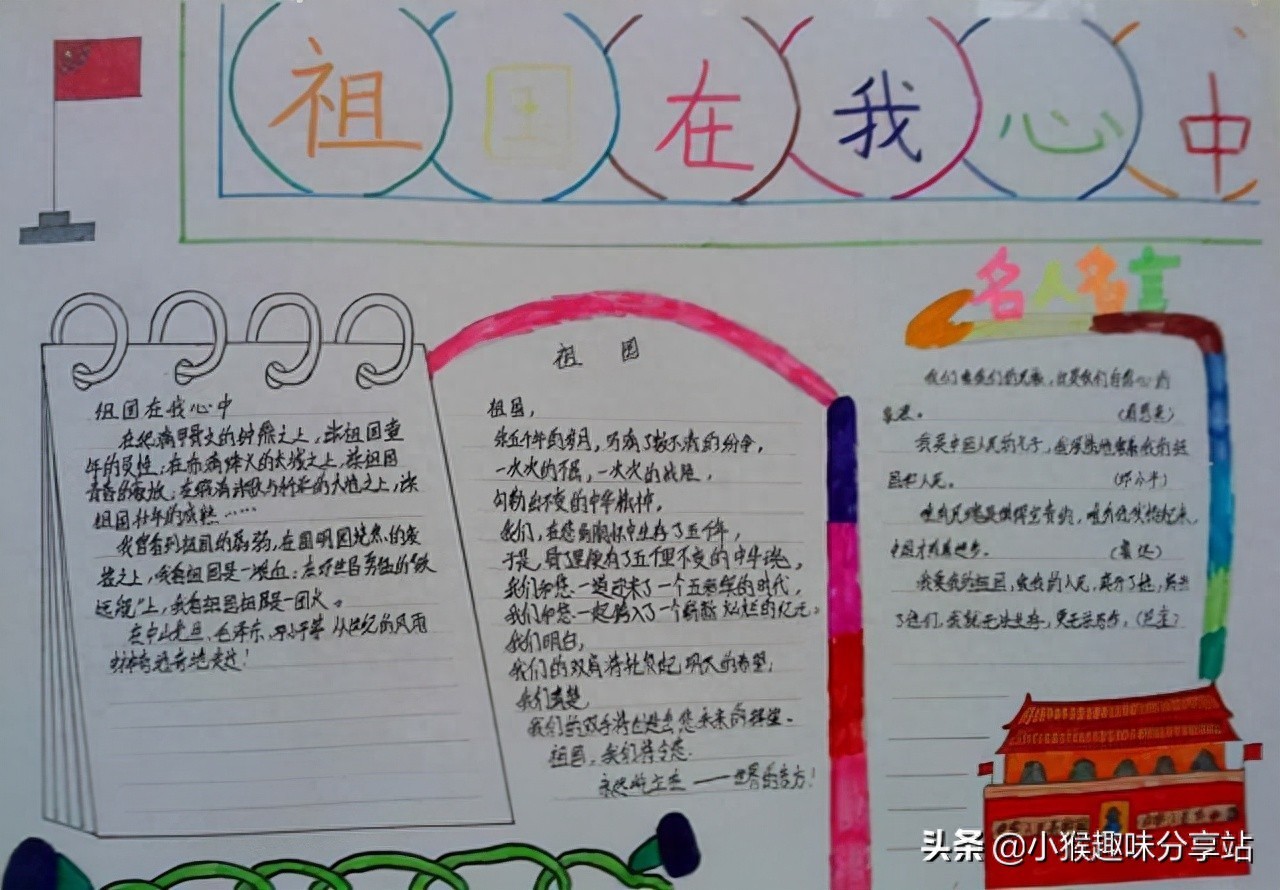 祖国在我心中
名人名言
祖国在我心中
在纸满甲骨文的钟鼎之上,读祖国童
年的灵性;在布满烽火的长城之上,读祖国
青春的豪放;在缀满诗歌与科学的大地之上,读
祖国壮年的成熟……
我曾看到祖国的孱弱,在圆明园烧焦的废
墟之上,我看祖国是一滩血;在
上,我看祖国祖国是一团火。
在中山先生、毛泽东、邓小平等 从世纪的风雨
走过!
祖 国
祖国,
您五千年的岁月,写满了数不清的
一次次的不屈,一次次的战胜,
勾勒出不变的中华精神,
我们,在您的胸怀中生存了五千年,
于是,骨子里便有了五千里不变的中华魂,
我们和您一道迎来了一个五彩缤的时代,
我们和您一起跨入了一个崭新 灿烂的亿元。
我们明白,
我们的双肩将扛负起明天的希望;
我们清楚,
我们的双手将 您未来的辉煌。
祖国,我们将令您
永远屹立在——世界的东方!
我们爱我们的民族,这是我们自信心的
泉源。 (周恩来)
我是中国人民的儿子,我深情地爱着我的祖
国和人民。 (邓小平)
唯有民魂是值得宝贵的,唯有他发扬起来,
中国才有真进步。 (鲁迅)
我爱我的祖国,爱我的人民,离开了她,离开
了他们,我就无法生存,更无法写作,(巴金)
头条 @小猴趣味分享站